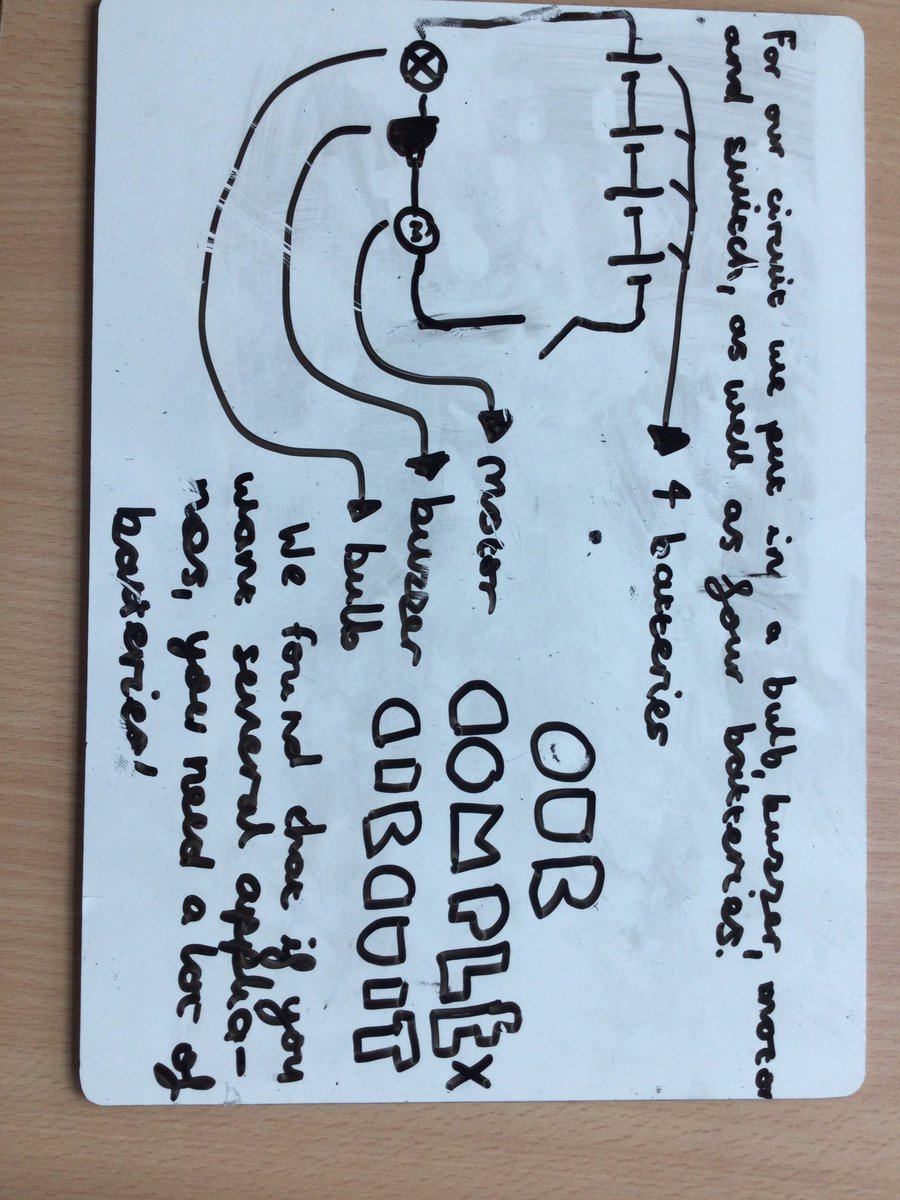 For our circuit we put in a bulb, buzzer, motor
and switch, as well as four batteries.
4 batteries
M
motor
buzzer
bulb
OUR
COMPLEX
CIRCUIT
We found that if you
want several applia-
nces, you need a lot of
batteries!